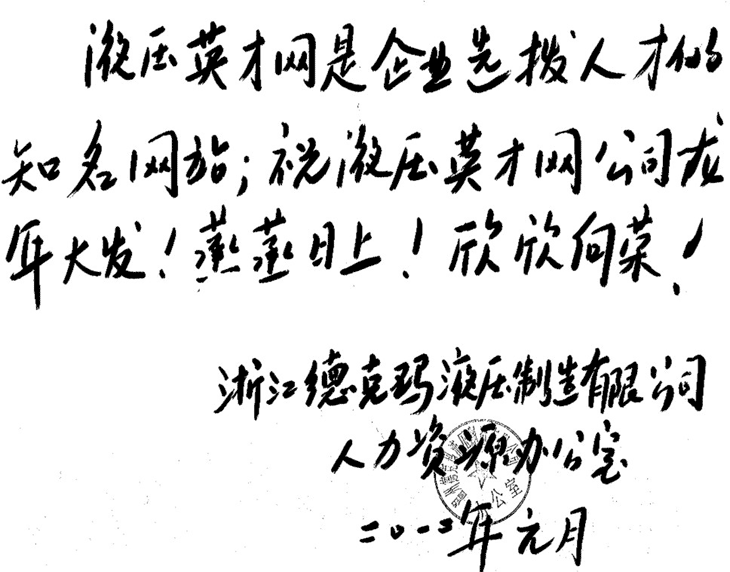 液压英才网是企业选拨人才的
知名网站；祝液压英才网公司龙
年大发！蒸蒸日上！欣欣向荣！
浙江德克玛液压制造有限公司
人力资源办公室
二〇一二年元月
公室